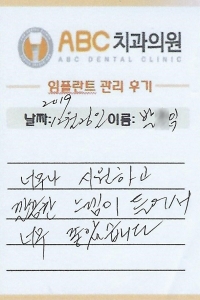 ABC치과의원
ABC DENTAL CLINIC
임플란트 관리 후기
2019
날짜: 12월26일 이름: 박 익
너무나 시원하고
깔끔한 느낌이 들어서
너무 좋았습니다